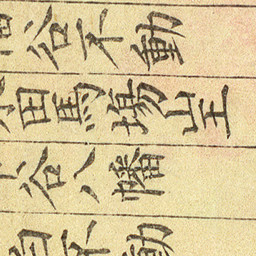 谷不動
田馬場山王
谷八幡
不動